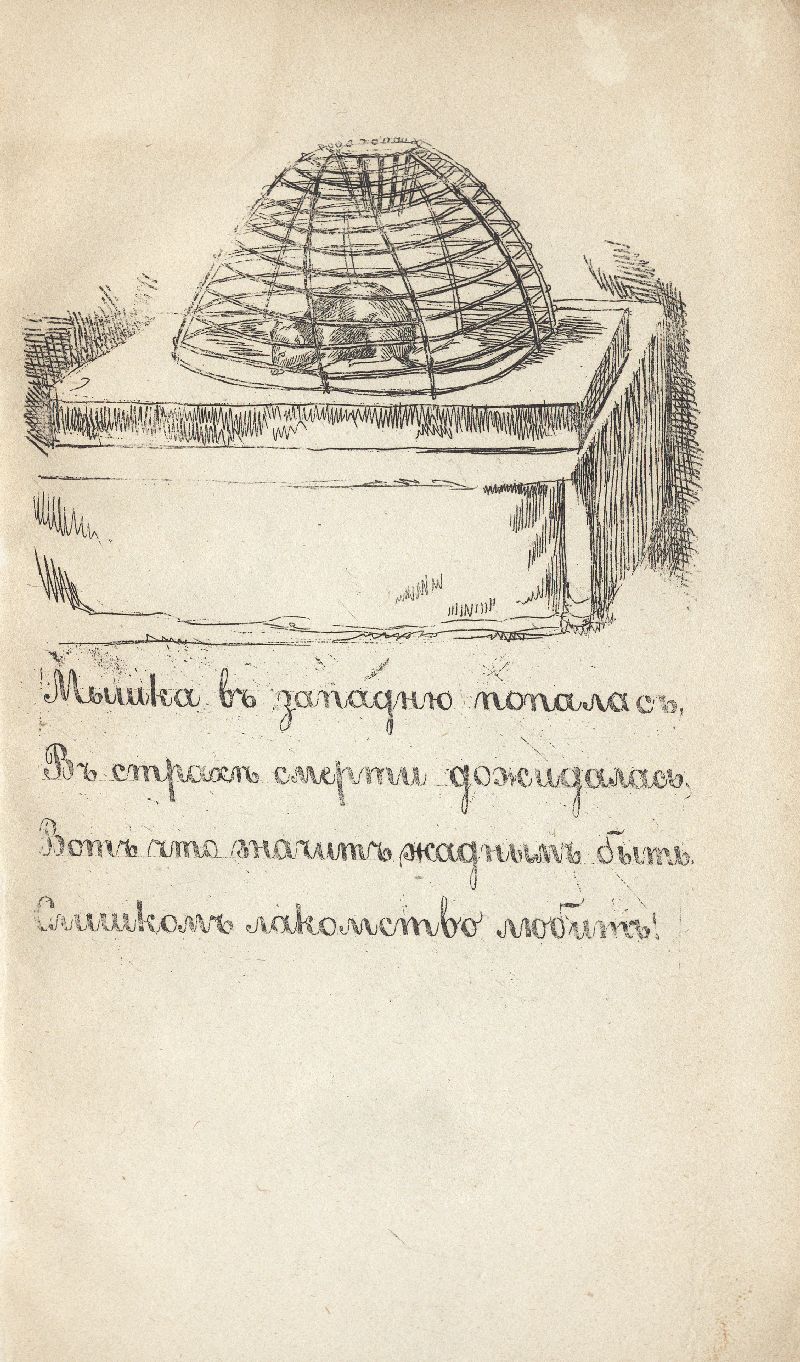 Мышка въ западню попалась,
Въ страхѣ смерти дожидалась,
Вотъ что значитъ жаднымъ быть
Слишкомъ лакомство любить!